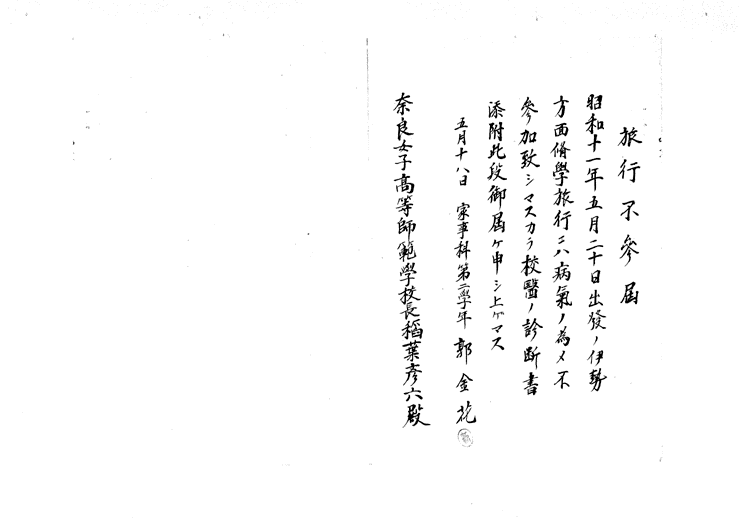 旅行不參屆
昭和十一年五月二十日出發ノ伊勢
方面脩學旅行ニハ病氣ノ為メ不
參加致シマスカラ校醫ノ診断書
添附此段御屆ケ申シ上ゲマス
五月十八日 家事科第二學年 郭金花
奈良女子高等師範學校長稻葉彦六殿